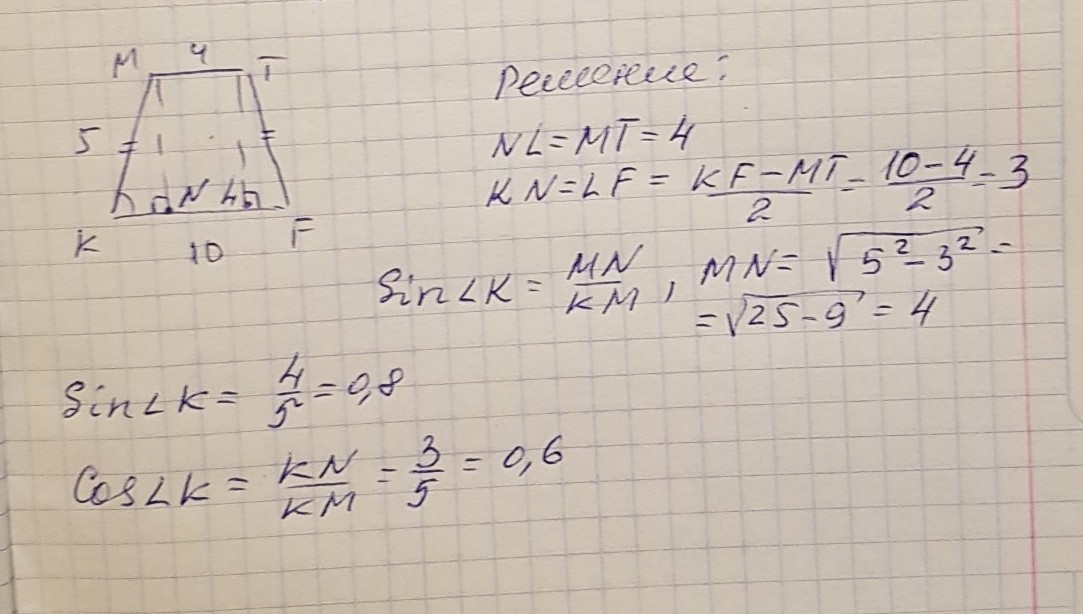 M 4 T
5
N L
K 10 F
Решение:
NL = MT = 4
KN = LF = KF - MT / 2 = 10 - 4 / 2 = 3
Sin∠K = MN / KM , MN = √5² - 3² =
= √25 - 9 = 4
Sin∠K = 4 / 5 = 0,8
Cos∠K = KN / KM = 3 / 5 = 0,6